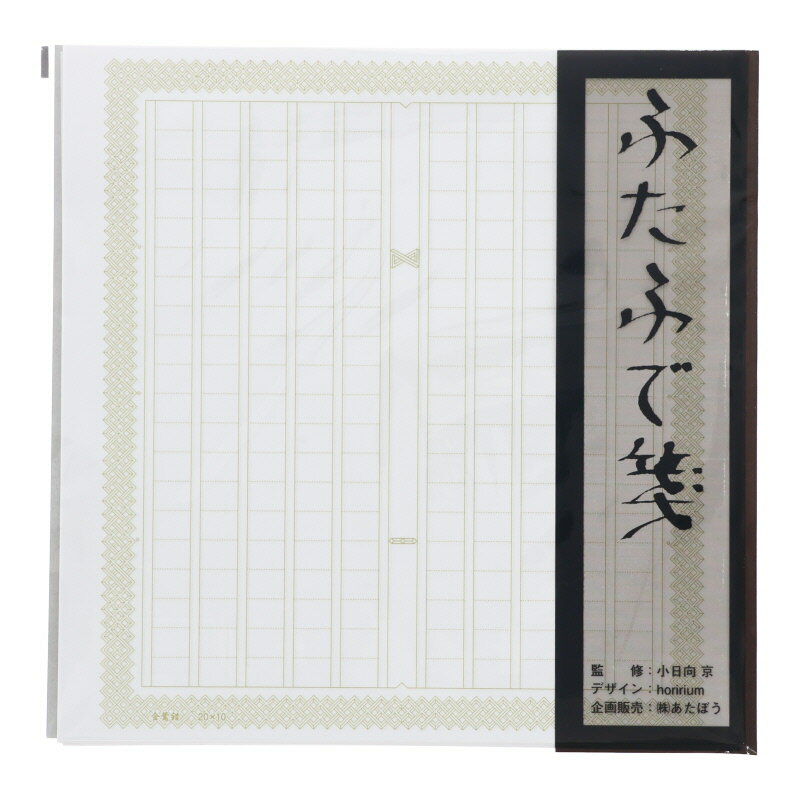 ふたふで箋
監　修：小日向 京
デザイン：horirium
企画販売：㈱あたぼう
20×10